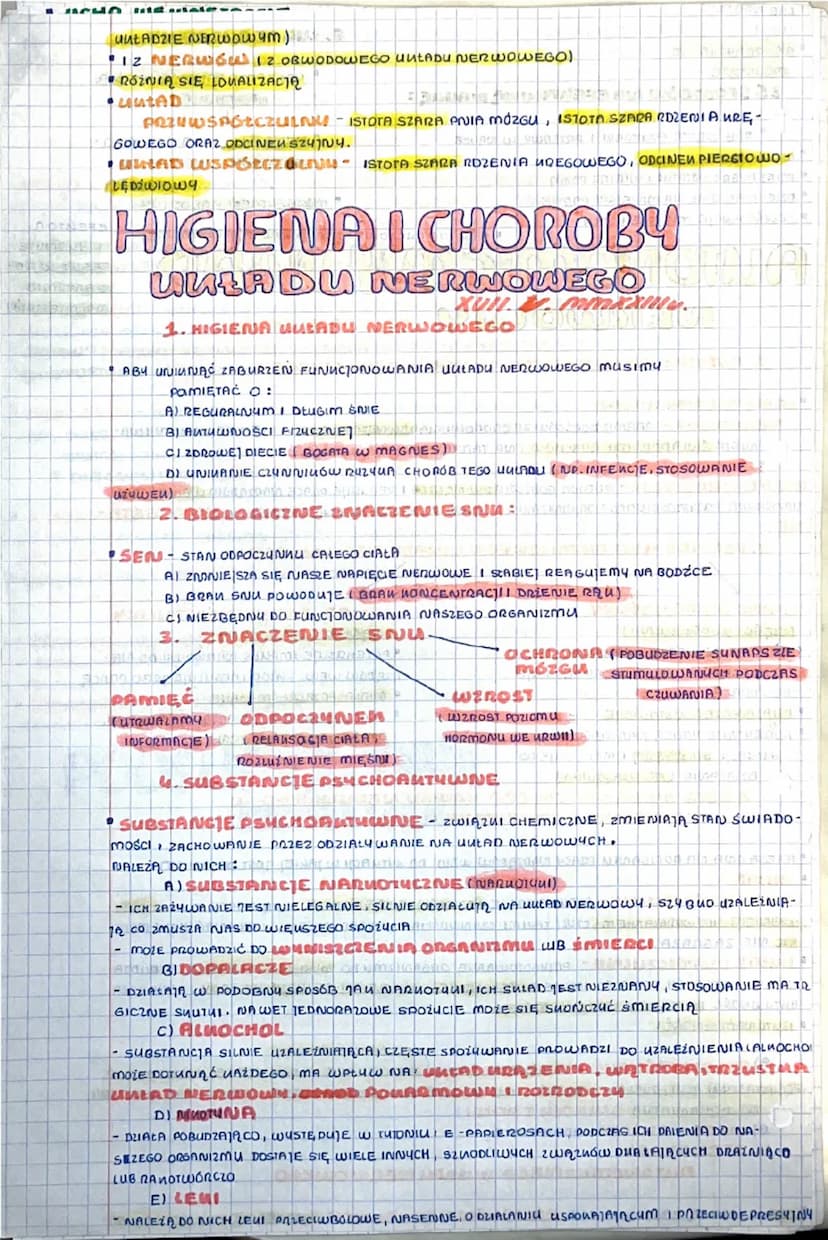 UKŁADZIE NERWOWYM)
• I Z NERWÓW (Z OBWODOWEGO UKŁADU NERWOWEGO)
• RÓŻNIĄ SIĘ LOKALIZACJĄ
• UKŁAD
PRZYWSPÓŁCZULNY - ISTOTA SZARA PNIA MÓZGU, ISTOTA SZARA RDZENIA KRĘ-
GOWEGO ORAZ ODCINEK SZYJNY.
• UKŁAD WSPÓŁCZULNY - ISTOTA SZARA RDZENIA KRĘGOWEGO, ODCINEK PIERSIOWO-
LĘDŹWIOWY
HIGIENA I CHOROBY
UKŁADU NERWOWEGO
XVII. V. MMXXIIIr.
1. HIGIENA UKŁADU NERWOWEGO
• ABY UNIKNĄĆ ZABURZEŃ FUNKCJONOWANIA UKŁADU NERWOWEGO MUSIMY
PAMIĘTAĆ O:
A) REGURALNYM I DŁUGIM ŚNIE
B) AKTYWNOŚCI FIZYCZNEJ
C) ZDROWEJ DIECIE (BOGATA W MAGNES)
D) UNIKANIE CZYNNIKÓW RYZYKA CHORÓB TEGO UKŁADU (NP. INFEKCJE, STOSOWANIE
UŻYWEK)
2. BIOLOGICZNE ZNACZENIE SNU:
• SEN - STAN ODPOCZYNKU CAŁEGO CIAŁA
A) ZMNIEJSZA SIĘ NASZE NAPIĘCIE NERWOWE I SŁABIEJ REAGUJEMY NA BODŹCE
B) BRAK SNU POWODUJE (BRAK KONCENTRACJI I DRŻENIE RĄK)
C) NIEZBĘDNY DO FUNKCJONOWANIA NASZEGO ORGANIZMU
3. ZNACZENIE SNU
OCHRONA (POBUDZENIE SYNAPS ZIE
MÓZGU STYMULOWANYCH PODCZAS
CZUWANIA)
PAMIĘĆ
(UTRWALAMY
INFORMACJE)
ODPOCZYNEK
(RELAKSACJA CIAŁA,
ROZLUŹNIENIE MIĘŚNI)
WZROST
(WZROST POZIOMU
HORMONU WE KRWII)
4. SUBSTANCJE PSYCHOAKTYWNE
• SUBSTANCJE PSYCHOAKTYWNE - ZWIĄZKI CHEMICZNE, ZMIENIAJĄ STAN ŚWIADO-
MOŚCI, ZACHOWANIE PRZEZ ODZIAŁYWANIE NA UKŁAD NERWOWYCH.
NALEŻĄ DO NICH:
A) SUBSTANCJE NARKOTYCZNE (NARKOTYKI)
- ICH ZAŻYWANIE JEST NIELEGALNE, SILNIE ODZIAŁUJĄ NA UKŁAD NERWOWY, SZYBKO UZALEŻNIA-
JĄ CO ZMUSZA NAS DO WIĘKSZEGO SPOŻYCIA
- MOŻE PROWADZIĆ DO WYNISZCZENIA ORGANIZMU LUB ŚMIERCI
B) DOPALACZE
- DZIAŁAJĄ W PODOBNY SPOSÓB JAK NARKOTYKI, ICH SKŁAD JEST NIEZNANY, STOSOWANIE MA TR
GICZNE SKUTKI. NAWET JEDNORAZOWE SPOŻYCIE MOŻE SIĘ SKOŃCZYĆ ŚMIERCIĄ
C) ALKOCHOL
- SUBSTANCJA SILNIE UZALEŻNIAJĄCA, CZĘSTE SPOŻYWANIE PROWADZI DO UZALEŻNIENIA (ALKOCHO
MOŻE DOTKNĄĆ KAŻDEGO, MA WPŁYW NA: UKŁAD KRĄŻENIA, WĄTROBA, TRZUSTKA
UKŁAD NERWOWY, POKARMOWY I ROZRODCZY
D) NIKOTYNA
- DZIAŁA POBUDZAJĄCO, WYSTĘPUJE W TYTONIU I E-PAPIEROSACH, PODCZAS ICH PALENIA DO NA-
SZEGO ORGANIZMU DOSTAJE SIĘ WIELE INNYCH, SZKODLIWYCH ZWIĄZKÓW DZIAŁAJĄCYCH DRAŻNIĄCO
LUB RAKOTWÓRCZO
E) LEKI
- NALEŻĄ DO NICH LEKI PRZECIWBÓLOWE, NASENNE, O DZIAŁANIU USPOKAJAJĄCYM I PRZECIWDEPRESYJNY